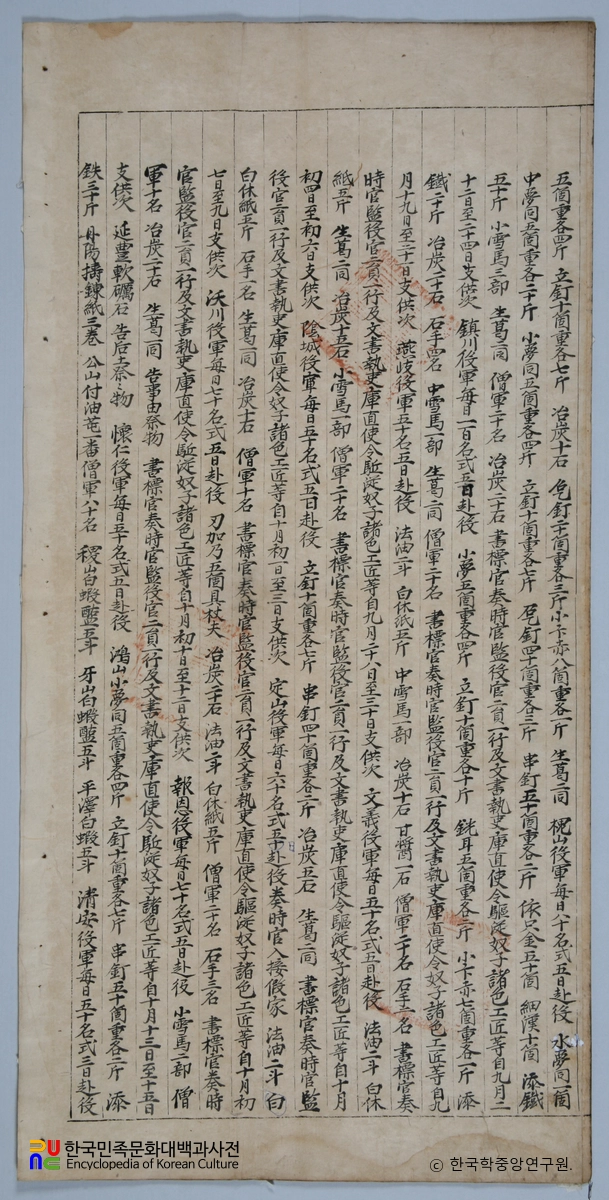 五箇重各四斤 立釘十箇重各七斤 冶炭十石 曲釘二十箇重各三斤 小卞亦八箇重各一斤 生葛二同 槐山役軍每日八十名式五日赴役 水夢同一箇
中夢同五箇重各二十斤 小夢同五箇重各四斤 立釘十箇重各七斤 曲釘四十箇重各三斤 串釘五十箇重各二斤 依只金五十箇 細漢十箇 添鐵
五十斤 小雪馬三部 生葛二同 僧軍二十名 冶炭二十石 書標官奏時官監役官二員一行及文書執吏庫直使令驅從奴子諸色工匠等自九月二
十二日至二十四日支供次 鎭川役軍每日一百名式五日赴役 小夢五箇重各四斤 立釘十箇重各十斤 銚耳五箇重各二斤 小卞亦七箇重各一斤 添
鐵二十斤 冶炭二十石 石手四名 中雪馬一部 生葛二同 僧軍二十名 書標官奏時官監役官二員一行及文書執吏庫直使令奴子諸色工匠等自九
月十九日至二十一日支供次 燕岐役軍五十名五日赴役 法油二斗 白休紙五斤 中雪馬一部 冶炭十石 甘醬一石 僧軍二十名 石手二名 書標官奏
時官監役官二員一行及文書執吏庫直使令驅從奴子諸色工匠等自九月二十八日至三十日支供次 文義役軍每日五十名式五日赴役 法油二斗 白休
紙五斤 生葛二同 冶炭十五石 小雪馬一部 僧軍二十名 書標官奏時官監役官二員一行及文書執吏庫直使令驅從奴子諸色工匠等自十月
初四日至初六日支供次 陰城役軍每日五十名式五日赴役 立釘十箇重各七斤 串釘四十箇重各二斤 冶炭五石 生葛二同 書標官奏時官監
役官二員一行及文書執吏庫直使令奴子諸色工匠等自十月初一日至三日支供次 定山役軍每日六十名式五日赴役奏時官入接假家 法油二斗 白
白休紙五斤 石手一名 生葛二同 冶炭十石 僧軍十名 書標官奏時官監役官二員一行及文書執吏庫直使令驅從奴子諸色工匠等自十月初
七日至九日支供次 沃川役軍每日七十名式五日赴役 刃加乃五箇具杖夫 冶炭二十石 法油二斗 白休紙五斤 僧軍二十名 石手三名 書標官奏時
官監役官二員一行及文書執吏庫直使令驅從奴子諸色工匠等自十月初十日至十二日支供次 報恩役軍每日七十名式五日赴役 小雪馬二部 僧
軍十名 冶炭二十石 生葛一同 告事由祭物 書標官奏時官監役官二員一行及文書執吏庫直使令驅從奴子諸色工匠等自十月十三日至十五日
支供次 延豊軟礪石 告后土祭祭物 懷仁役軍每日五十名式五日赴役 鴻山小夢同五箇重各四斤 立釘十箇重各七斤 串釘五十箇重各二斤 添
鉄三十斤 丹陽擣鍊紙三卷 公山付油芚一番僧軍八十名 稷山白蝦醢五斗 牙山白蝦醢五斗 平澤白蝦五斗 淸安役軍每日五十名式三日赴役
한국민족문화대백과사전
Encyclopedia of Korean Culture
© 한국학중앙연구원.